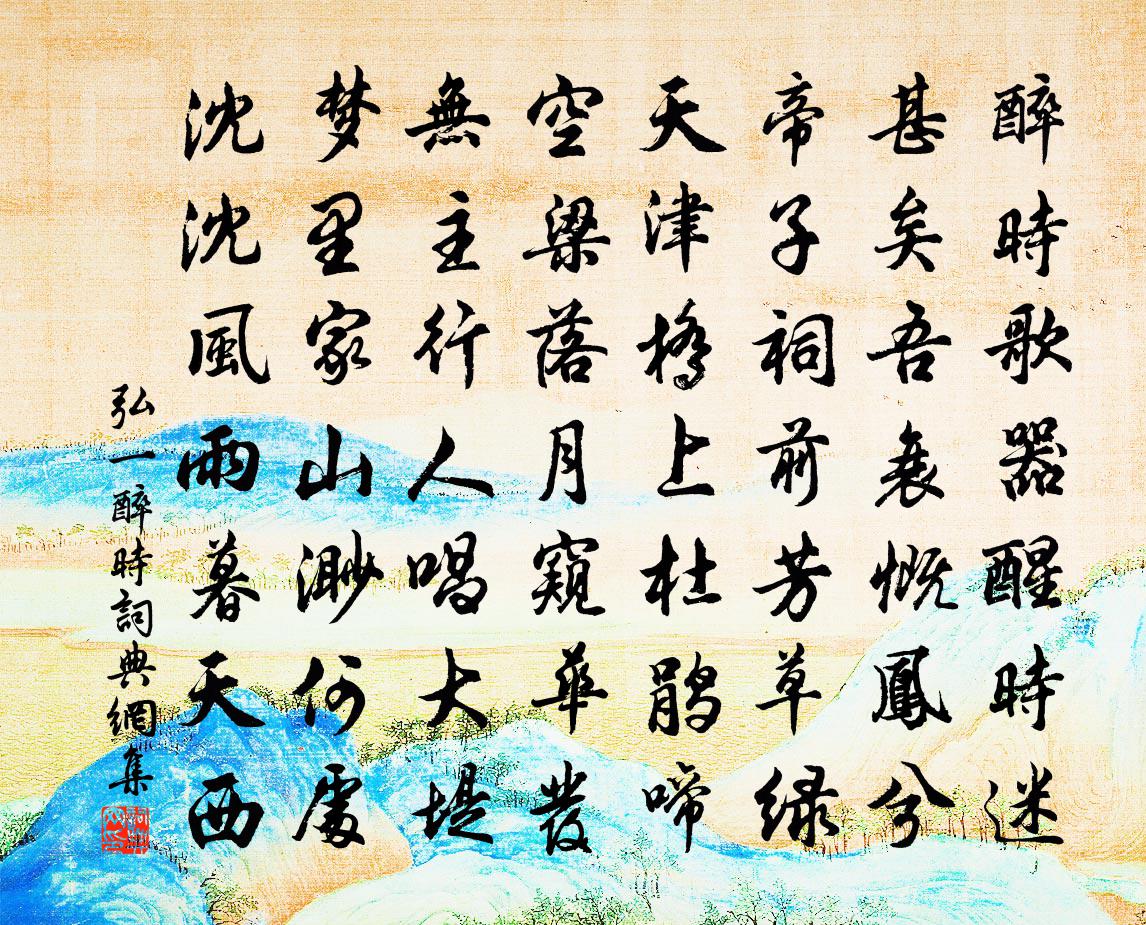 醉時歌器醒時迷
甚矣吾衰慨鳳兮
帝子祠前芳草绿
天津橋上杜鹃啼
空梁落月窺華發
無主行人唱大堤
梦里家山渺何處
沈沈風雨暮天西
弘一醉時詞典網集